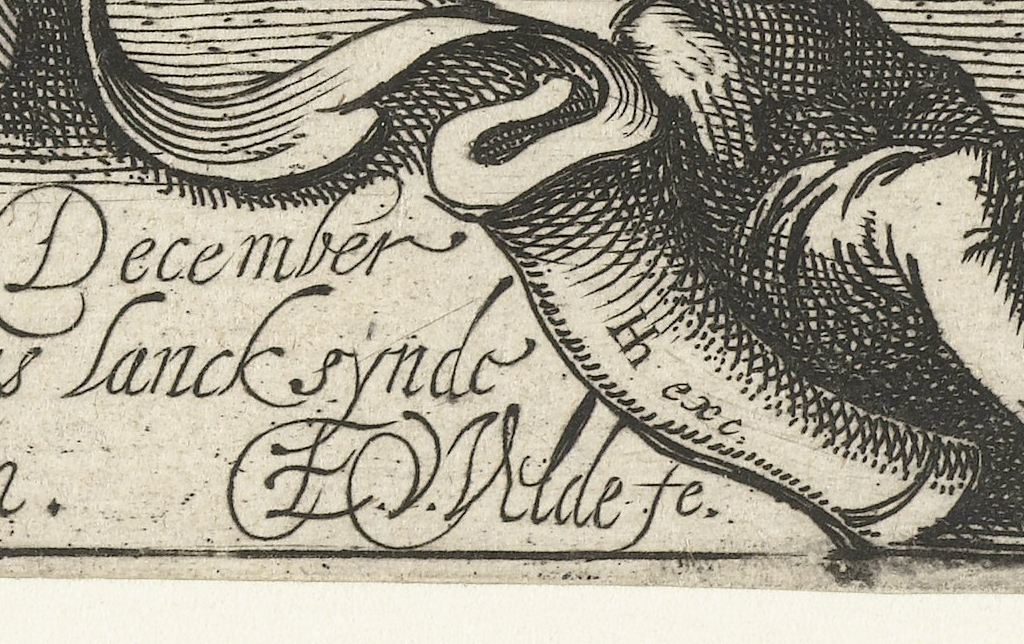 December
s lanck synde
n. E.V.Wilde fe.
HH exc.